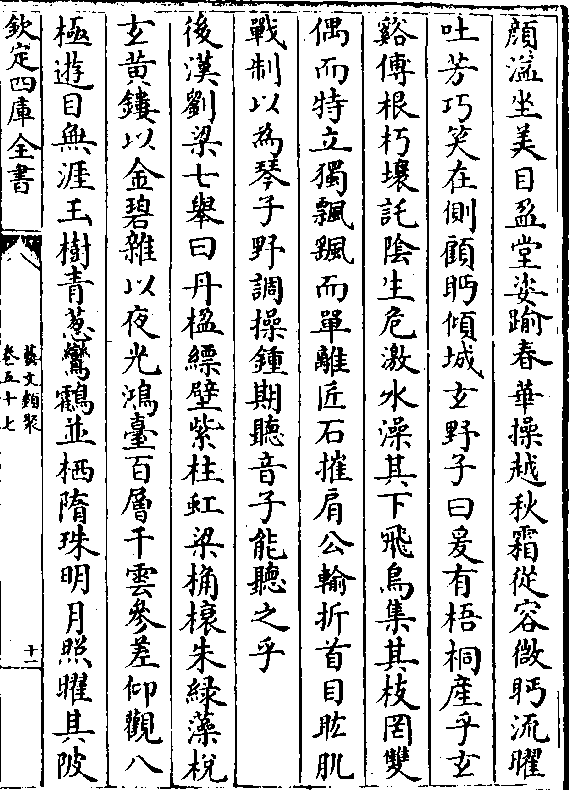 顔溢坐美目盈堂姿踰春華操越秋霜從容微眄流曜
吐芳巧笑在側顧眄傾城玄野子曰爰有梧桐產乎玄
谿傅根朽壤託陰生危激水澡其下飛鳥集其枝罔雙
偶而特立獨飄颻而單離匠石摧肩公輸折首目眩肌
戰制以為琴子野調操鍾期聽音子能聽之乎
後漢劉梁七舉曰丹楹縹壁紫柱虹梁桷榱朱緑藻梲
玄黄鏤以金碧雜以夜光鴻臺百層干雲參差仰觀八
極遊目無涯玉樹青葱鸞鸖並栖隋珠明月照曜其陂
欽定四庫全書
藝文類聚
卷五十七
十二